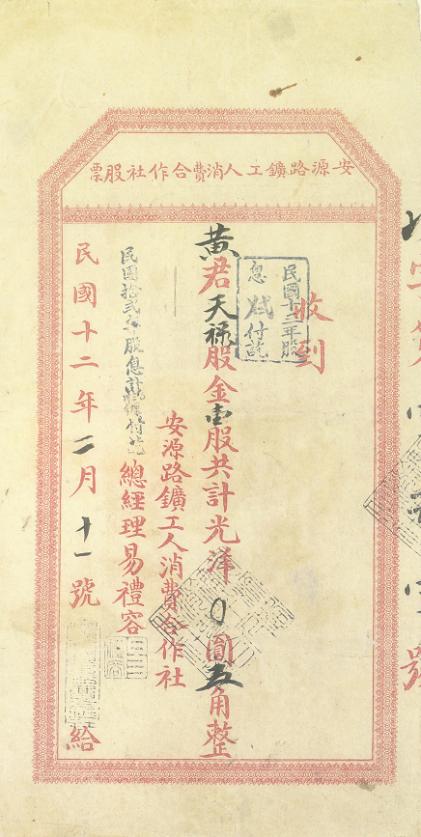 安源路鑛工人消費合作社股票
收到
民國十二年股
息 付訖
黃君天祿股金壹股共計光洋0圓五角整
安源路鑛工人消費合作社
總經理易禮容
民國拾貳年股息
民國十二年二月十一號 給
號